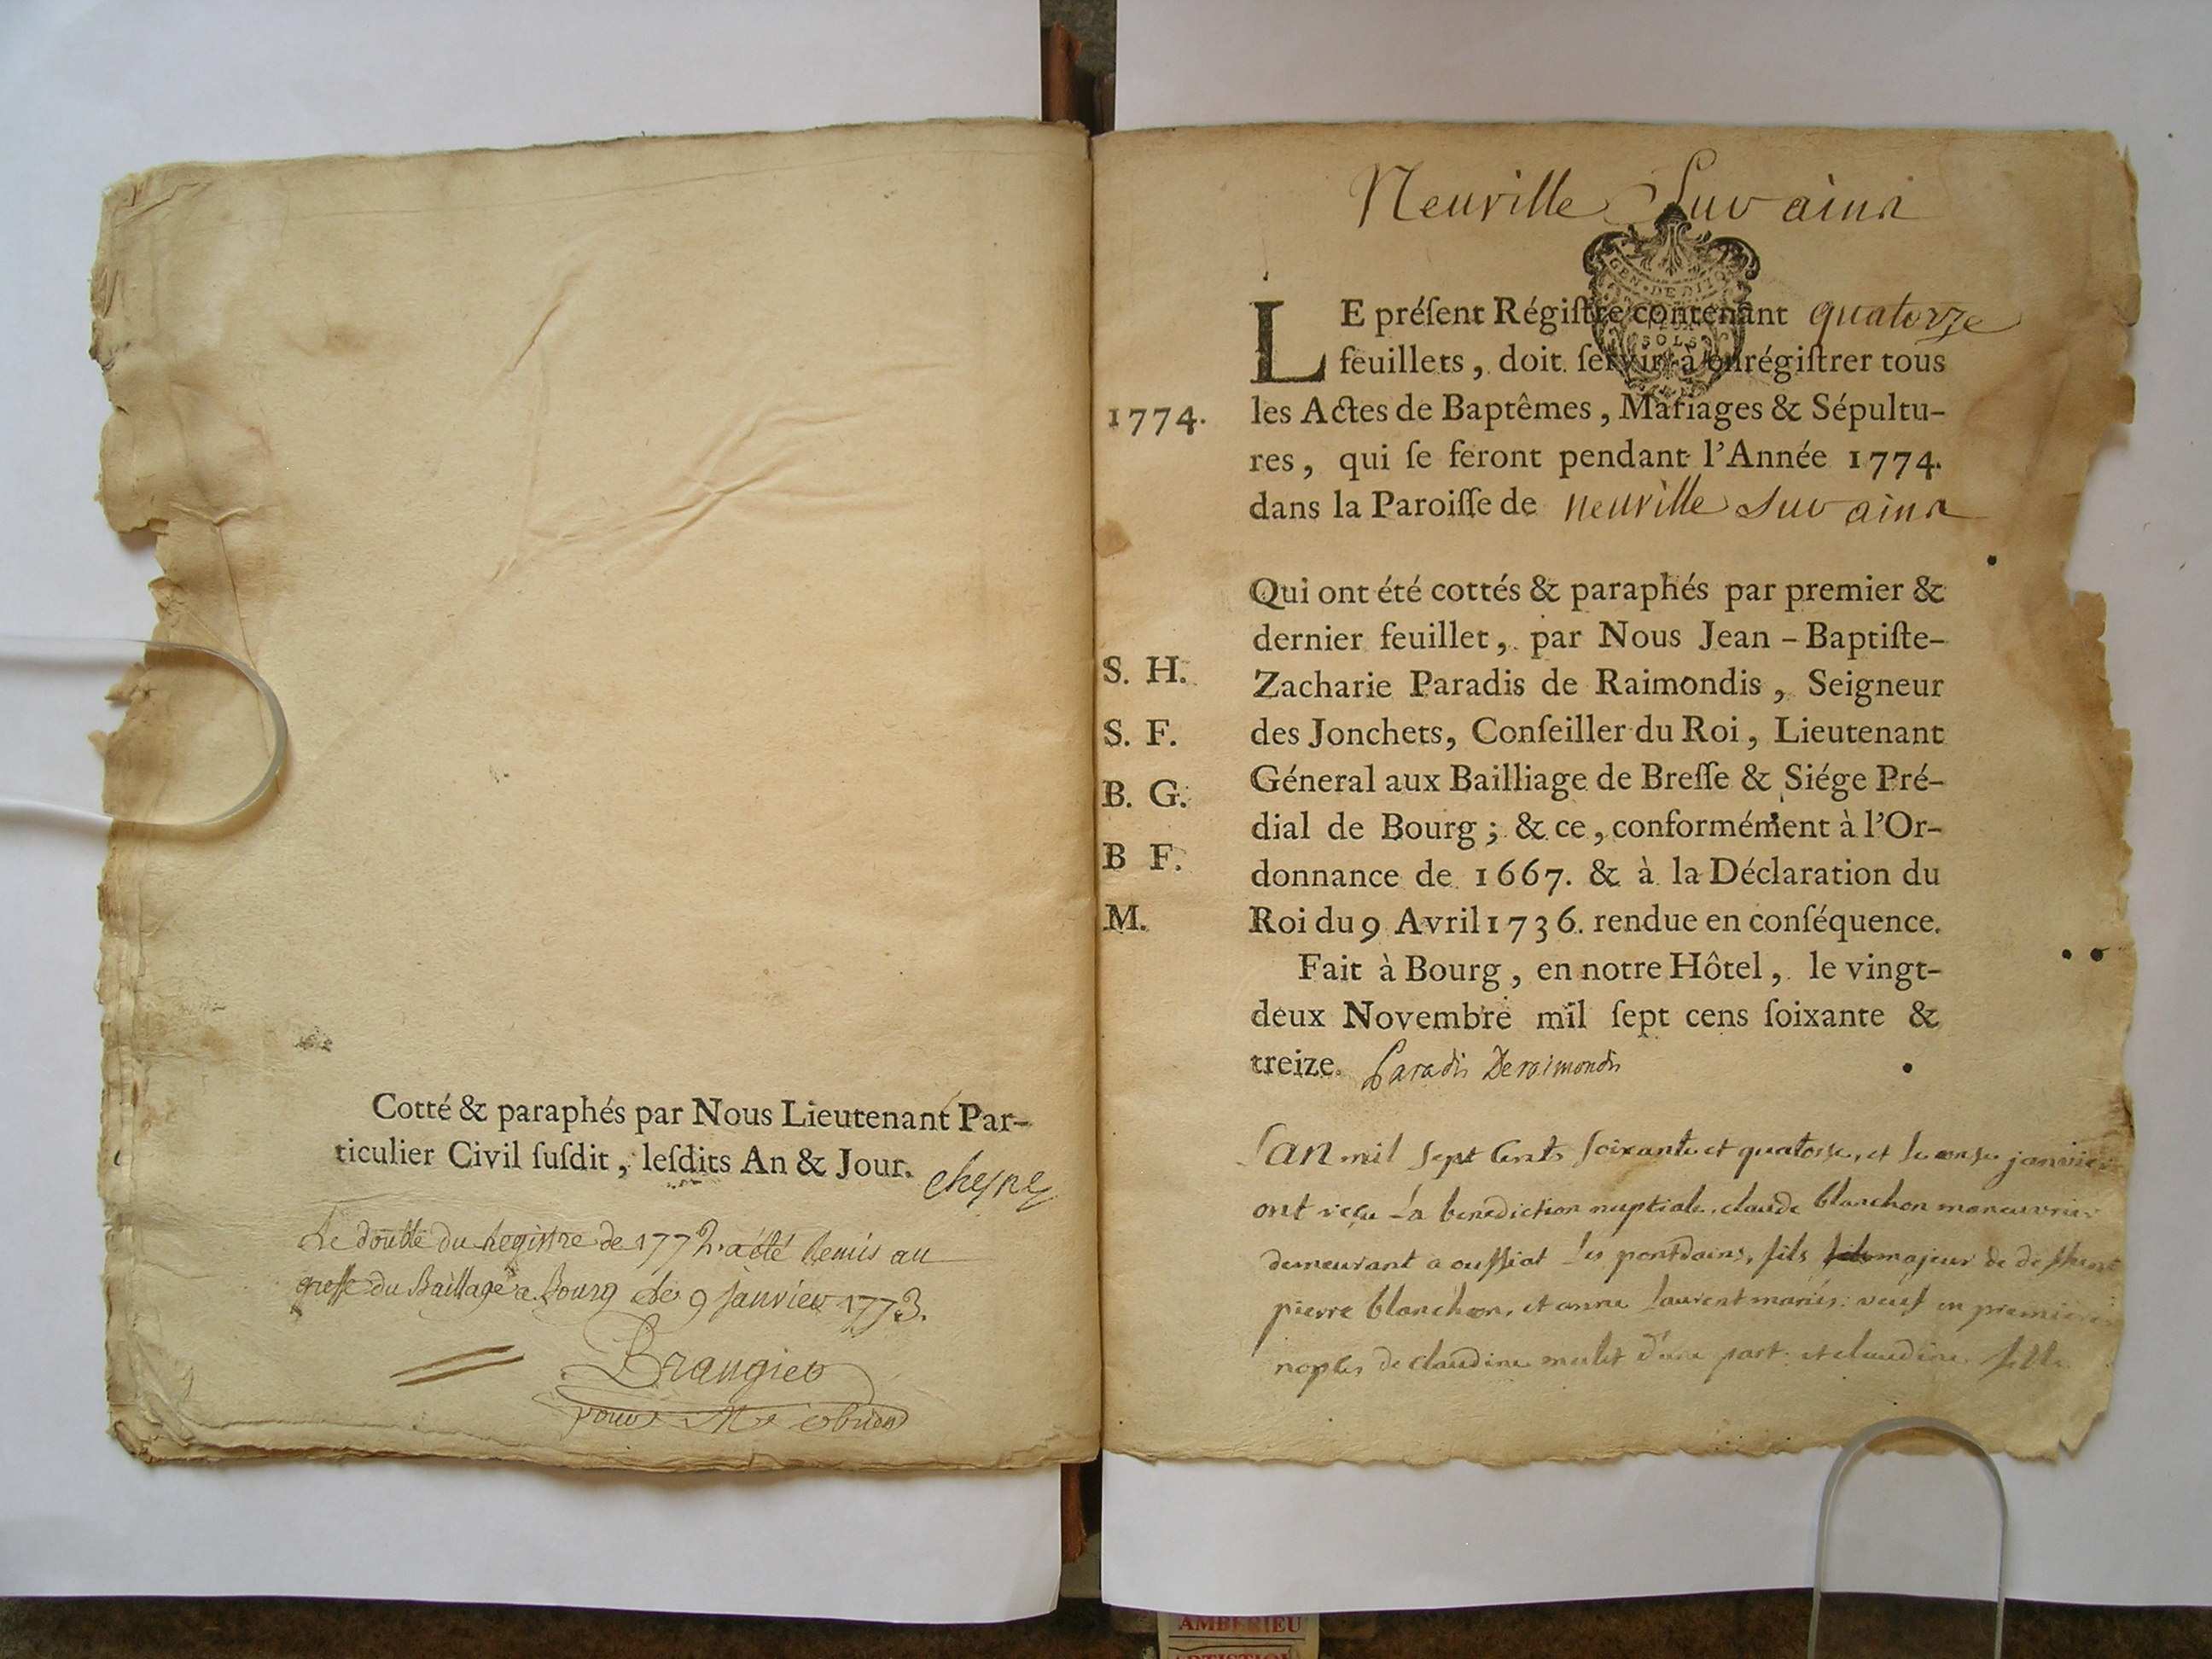 Cotté & paraphés par Nous Lieutenant Par-
ticulier Civil ſuſdit, leſdits An & Jour. Cheſne
Le double du Registre de 1772 a été Remis au
greffe du Bailliage a Bourg le 9 janvier 1773.
Brangier
pour Mre
Neuville Sur ain
GEN. DE DI
SOLS
LE préſent Régiſtre contenant quatorze
feuillets, doit ſervir à enrégiſtrer tous
1774. les Actes de Baptêmes, Mariages & Sépultu-
res, qui ſe feront pendant l'Année 1774.
dans la Paroiſſe de neuville Sur ain
Qui ont été cottés & paraphés par premier &
dernier feuillet, par Nous Jean-Baptiſte-
S. H. Zacharie Paradis de Raimondis, Seigneur
S. F. des Jonchets, Conſeiller du Roi, Lieutenant
B. G. Géneral aux Bailliage de Breſſe & Siége Pré-
dial de Bourg; & ce, conformément à l'Or-
B F. donnance de 1667. & à la Déclaration du
M. Roi du 9 Avril 1736. rendue en conſéquence.
Fait à Bourg, en notre Hôtel, le vingt-
deux Novembre mil ſept cens ſoixante &
treize. Paradis De raimondis
L'an mil Sept Cents Soixante et quatorse, et le onse janvier
ont reçu la benediction nuptiale, claude blanchon manouvrier
demeurant a oussiat les pontdains, fils majeur de deffunt
pierre blanchon, et anne laurent mariés: veuf en premieres
nopces de claudine mulet d'une part: et claudine fille
AMBERIEU